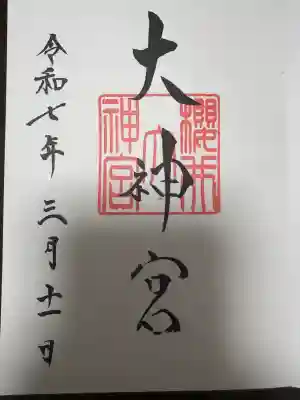 大神宮
櫻木
神宮
令和七年 三月十一日